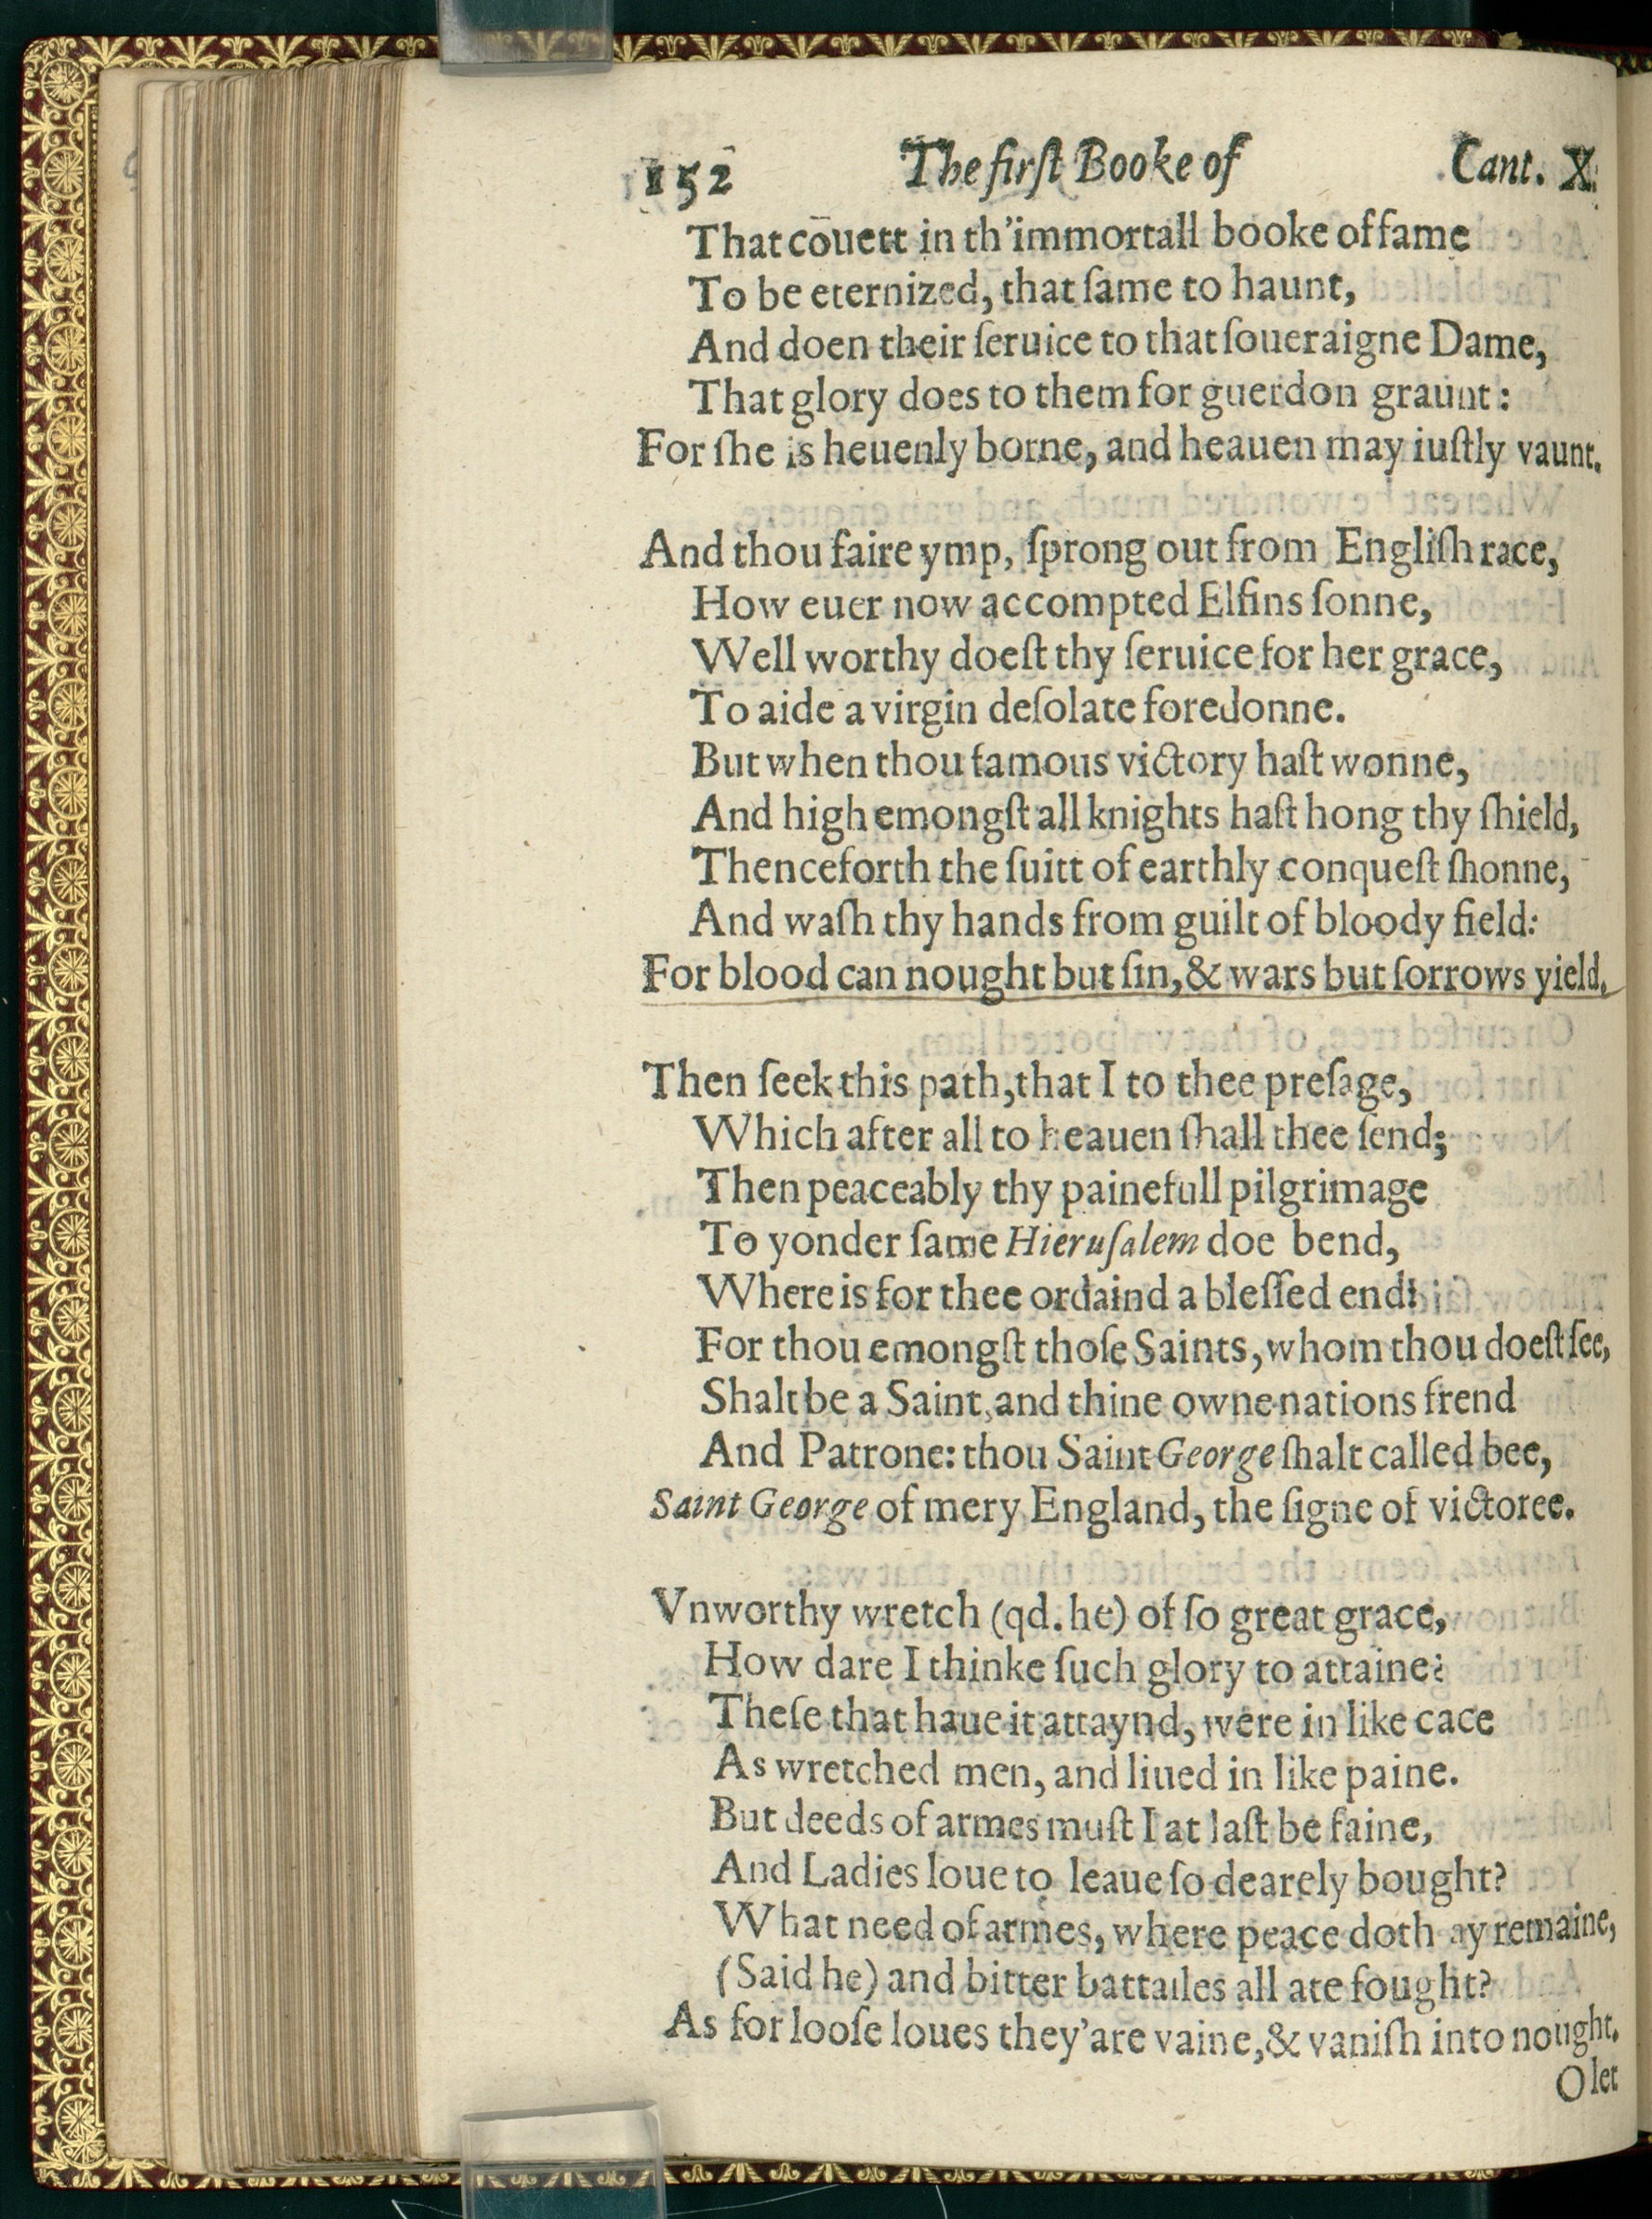 152 The firſt Booke of Cant. X.
That coūett in th'immortall booke of fame
To be eternized, that ſame to haunt,
And doen their ſeruice to that ſoueraigne Dame,
That glory does to them for guerdon graunt:
For ſhe is heuenly borne, and heauen may iuſtly vaunt.
And thou faire ymp, ſprong out from Engliſh race,
How euer now accompted Elfins ſonne,
Well worthy doeſt thy ſeruice for her grace,
To aide a virgin deſolate foredonne.
But when thou famous victory haſt wonne,
And high emongſt all knights haſt hong thy ſhield,
Thenceforth the ſuitt of earthly conqueſt ſhonne,
And waſh thy hands from guilt of bloody field:
For blood can nought but ſin, & wars but ſorrows yield.
Then ſeek this path, that I to thee preſage,
Which after all to heauen ſhall thee ſend;
Then peaceably thy painefull pilgrimage
To yonder ſame Hieruſalem doe bend,
Where is for thee ordaind a bleſſed end:
For thou emongſt thoſe Saints, whom thou doeſt ſee,
Shalt be a Saint, and thine owne nations frend
And Patrone: thou Saint George ſhalt called bee,
Saint George of mery England, the ſigne of victoree.
Vnworthy wretch (qd. he) of ſo great grace,
How dare I thinke ſuch glory to attaine?
Theſe that haue it attaynd, were in like cace
As wretched men, and liued in like paine.
But deeds of armes muſt I at laſt be faine,
And Ladies loue to leaue ſo dearely bought?
What need of armes, where peace doth ay remaine,
(Said he) and bitter battailes all are fought?
As for looſe loues they'are vaine, & vaniſh into nought.
O let